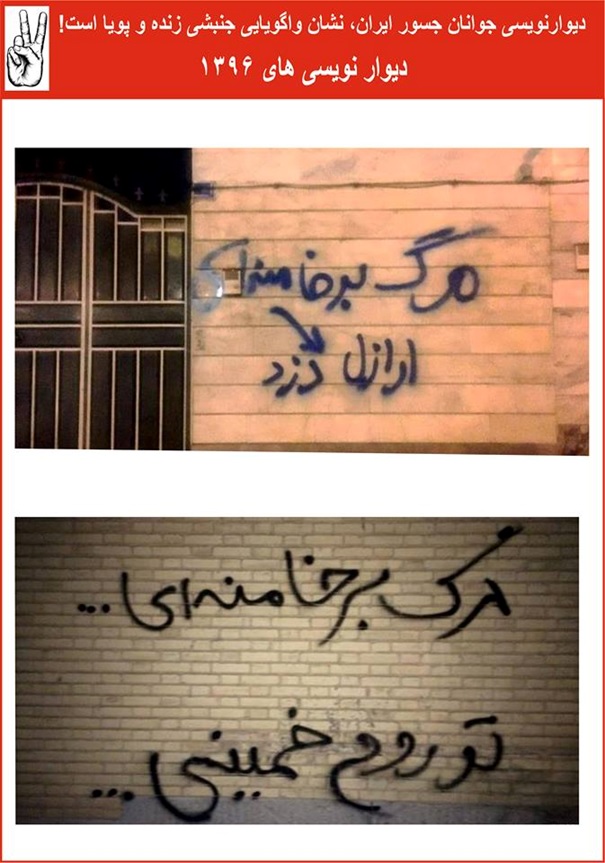 دیوارنویسی جوانان جسور ایران، نشان واگویایی جنبشی زنده و پویا است!
دیوار نویسی های ۱۳۹۶
مرگ بر خامنه‌ای
اراذل دزد
مرگ بر خامنه‌ای ...
تو روح خمینی ...